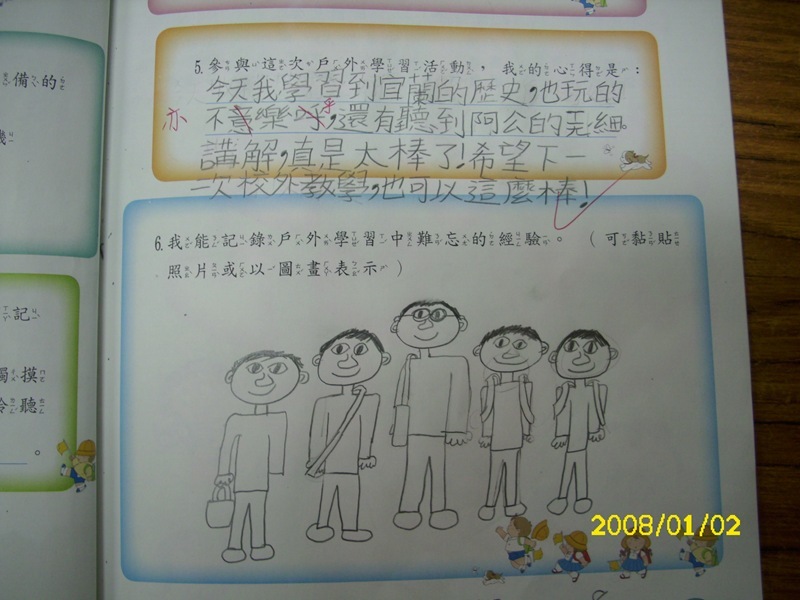 備的
幾
記
觸摸
聆聽
。
5.參與這次戶外學習活動，我的心得是：
今天我學習到宜蘭的歷史,也玩的
亦
不意樂呼,還有聽到阿公的
乎
講解,真是太棒了!希望下一
次校外教學,也可以這麼棒!
6.我能記錄戶外學習中難忘的經驗。（可黏貼
照片或以圖畫表示）
2008/01/02